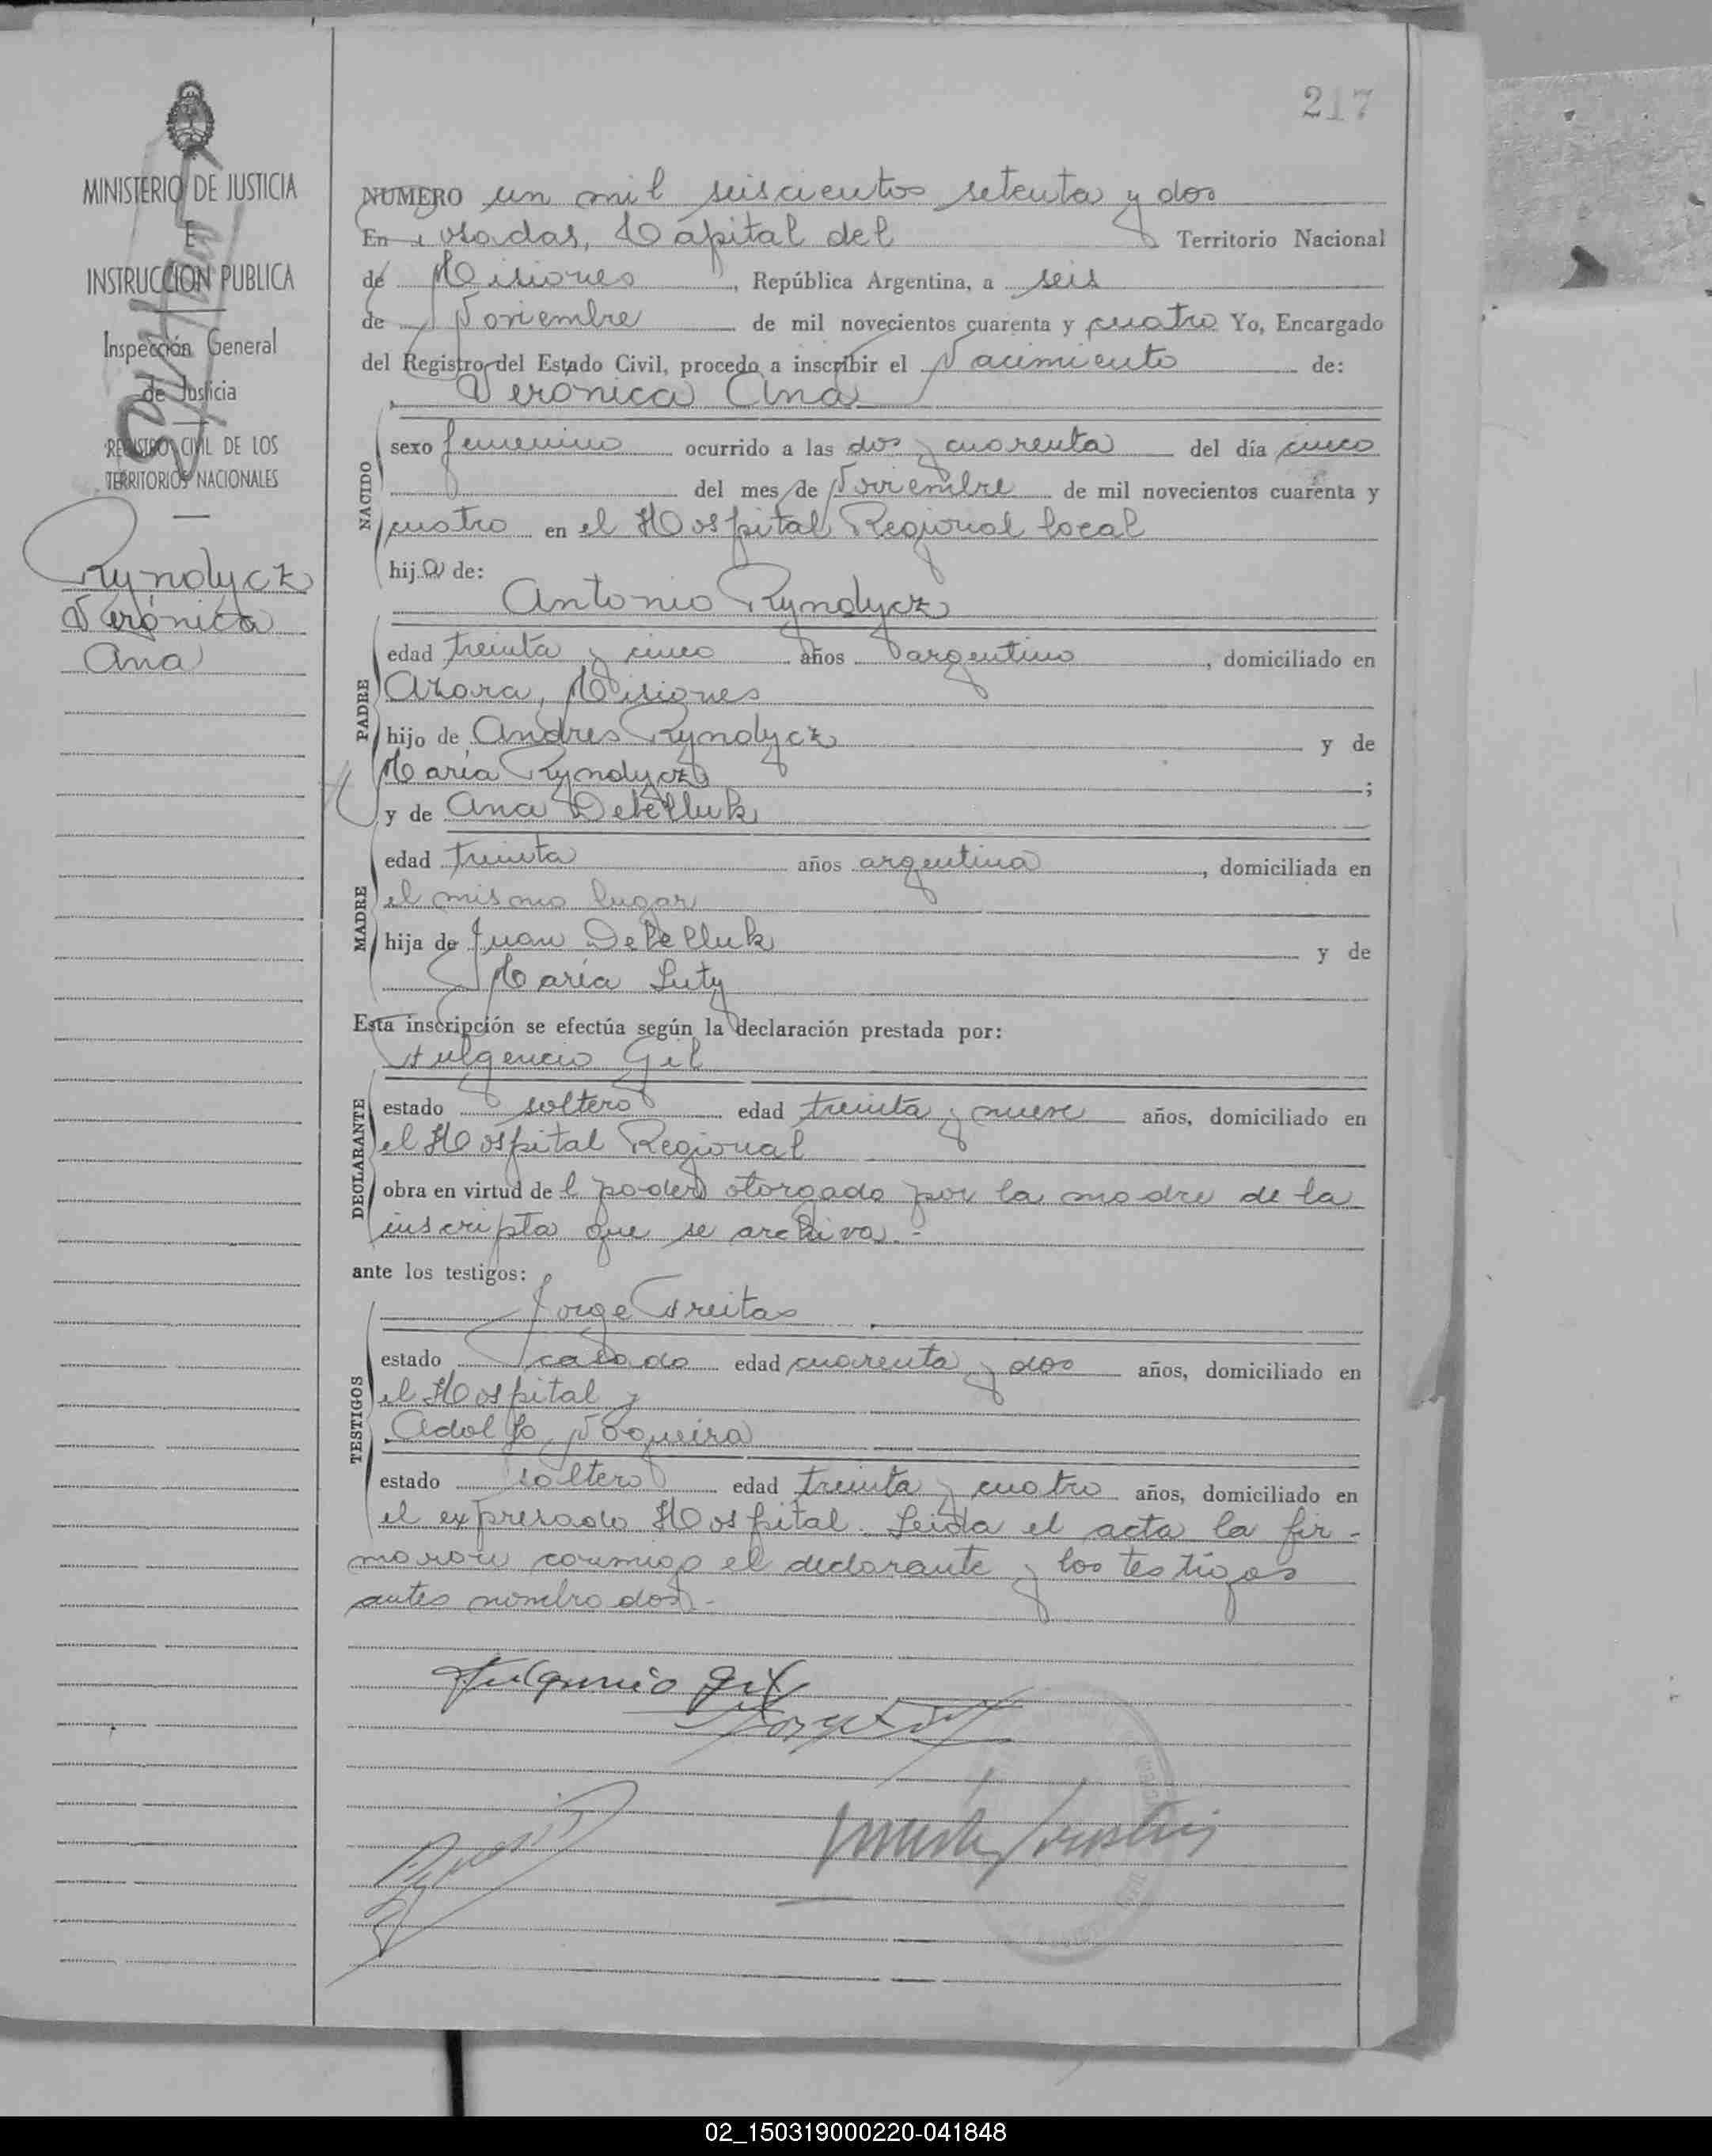 217
MINISTERIO DE JUSTICIA
E
INSTRUCCION PUBLICA
Inspección General
de Justicia
REGISTRO CIVIL DE LOS
TERRITORIOS NACIONALES
Ryndycz
Verónica
Ana
NUMERO un mil seiscientos setenta y dos
En Posadas, Capital del Territorio Nacional
de Misiones, República Argentina, a seis
de Noviembre de mil novecientos cuarenta y cuatro Yo, Encargado
del Registro del Estado Civil, procedo a inscribir el Nacimiento de:
Veronica Ana
NACIDO
sexo femenino ocurrido a las dos y cuarenta del día cinco
del mes de Noviembre de mil novecientos cuarenta y
cuatro en el Hospital Regional local
hija de:
Antonio Ryndycz
PADRE
edad treinta y cinco años argentino, domiciliado en
Azara, Misiones
hijo de Andres Ryndycz y de
María Ryndycz;
y de Ana Detelluk
MADRE
edad treinta años argentina, domiciliada en
el mismo lugar
hija de Juan Detelluk y de
María Luty
Esta inscripción se efectúa según la declaración prestada por:
Fulgencio Gil
DECLARANTE
estado soltero edad treinta y nueve años, domiciliado en
el Hospital Regional
obra en virtud del poder otorgado por la madre de la
inscripta que se archiva.-
ante los testigos:
Jorge Freitas
TESTIGOS
estado casado edad cuarenta y dos años, domiciliado en
el Hospital y
Adolfo Nogueira
estado soltero edad treinta y cuatro años, domiciliado en
el expresado Hospital. Leida el acta la fir-
maron conmigo el declarante y los testigos
antes nombrados.-
Fulgencio Gil
02_150319000220-041848